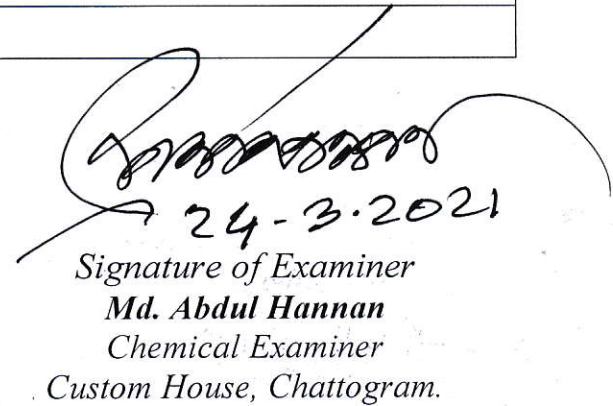 24-3.2021
Signature of Examiner
Md. Abdul Hannan
Chemical Examiner
Custom House, Chattogram.